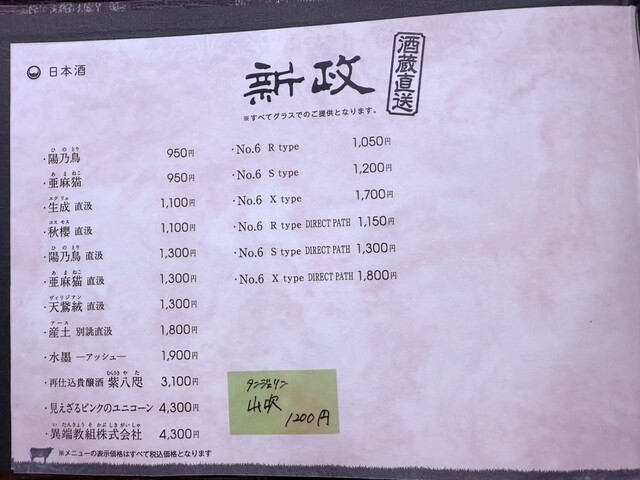 日本酒
新政
酒蔵直送
※すべてグラスでのご提供となります。
ひのとり
・陽乃鳥 950円
あまねこ
・亜麻猫 950円
エクリュ
・生成 直汲 1,100円
コスモス
・秋櫻 直汲 1,100円
ひのとり
・陽乃鳥 直汲 1,300円
あまねこ
・亜麻猫 直汲 1,300円
ヴィリジアン
・天鵞絨 直汲 1,300円
アース
・産土 別誂直汲 1,800円
・水墨 ―アッシュ― 1,900円
ひらさきやた
・再仕込貴醸酒 紫八咫 3,100円
・見えざるピンクのユニコーン 4,300円
いたんきょうそかぶしきがいしゃ
・異端教組株式会社 4,300円
・No.6 R type 1,050円
・No.6 S type 1,200円
・No.6 X type 1,700円
・No.6 R type DIRECT PATH 1,150円
・No.6 S type DIRECT PATH 1,300円
・No.6 X type DIRECT PATH 1,800円
タンジェリン
山吹
1200円
※メニューの表示価格はすべて税込価格となります